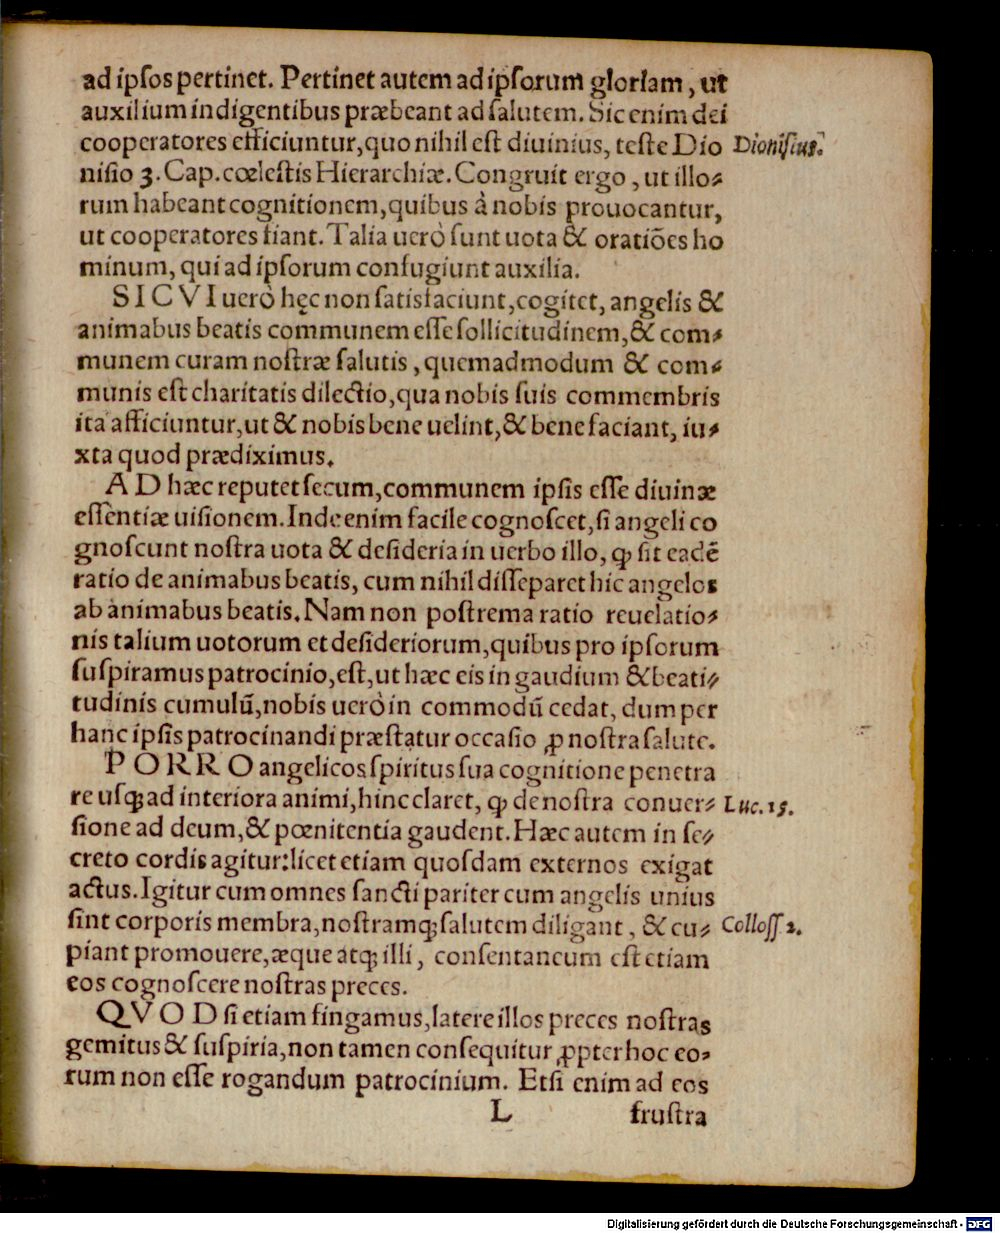 ad ipsos pertinet. Pertinet autem ad ipsorum gloriam, ut
auxilium indigentibus præbeant ad salutem. Sic enim dei
cooperatores efficiuntur, quo nihil est diuinius, teste Dio Dionisius.
nisio 3. Cap. cœlestis Hierarchiæ. Congruit ergo, ut illo-
rum habeant cognitionem, quibus à nobis prouocantur,
ut cooperatores fiant. Talia uerò sunt uota & oratiões ho
minum, qui ad ipsorum confugiunt auxilia.
SICVI uerò hęc non satisfaciunt, cogitet, angelis &
animabus beatis communem esse sollicitudinem, & com-
munem curam nostræ salutis, quemadmodum & com-
munis est charitatis dilectio, qua nobis suis commembris
ita afficiuntur, ut & nobis bene uelint, & bene faciant, iu-
xta quod prædiximus.
AD hæc reputet secum, communem ipsis esse diuinæ
essentiæ uisionem. Inde enim facile cognoscet, si angeli co
gnoscunt nostra uota & desideria in uerbo illo, ꝙ sit eadē
ratio de animabus beatis, cum nihil disseparet hic angelos
ab animabus beatis. Nam non postrema ratio reuelatio-
nis talium uotorum et desideriorum, quibus pro ipsorum
suspiramus patrocinio, est, ut hæc eis in gaudium & beati-
tudinis cumulū, nobis uerò in commodū cedat, dum per
hanc ipsis patrocinandi præstatur occasio ꝓ nostra salute.
PORRO angelicos spiritus sua cognitione penetra
re usqꝫ ad interiora animi, hinc claret, ꝙ de nostra conuer- Luc. 15.
sione ad deum, & pœnitentia gaudent. Hæc autem in se-
creto cordis agitur: licet etiam quosdam externos exigat
actus. Igitur cum omnes sancti pariter cum angelis unius
sint corporis membra, nostramqꝫ salutem diligant, & cu- Coloss. 2.
piant promouere, æque atqꝫ illi, consentaneum est etiam
eos cognoscere nostras preces.
QVOD si etiam fingamus, latere illos preces nostras
gemitus & suspiria, non tamen consequitur ꝓpter hoc eo-
rum non esse rogandum patrocinium. Etsi enim ad eos
L frustra
Digitalisierung gefördert durch die Deutsche Forschungsgemeinschaft - DFG